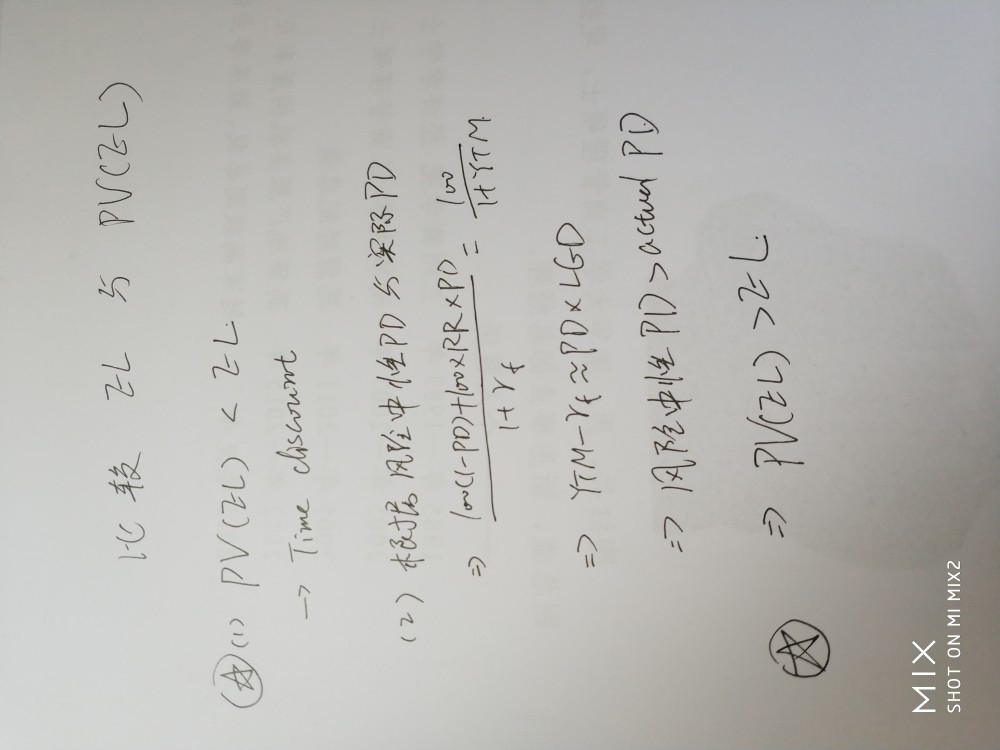 比较 ΣL 与 PV(ΣL)
(1) PV(ΣL) < ΣL
→ Time discount
(2) 根据风险中性PD与实际PD
=> \frac{100(1-PD)+100×RR×PD}{1+r_f} = \frac{100}{1+YTM}
=> YTM-r_f≈PD×LGD
=> 风险中性PD>actual PD
=> PV(ΣL)>ΣL.
MIX
SHOT ON MI MIX2